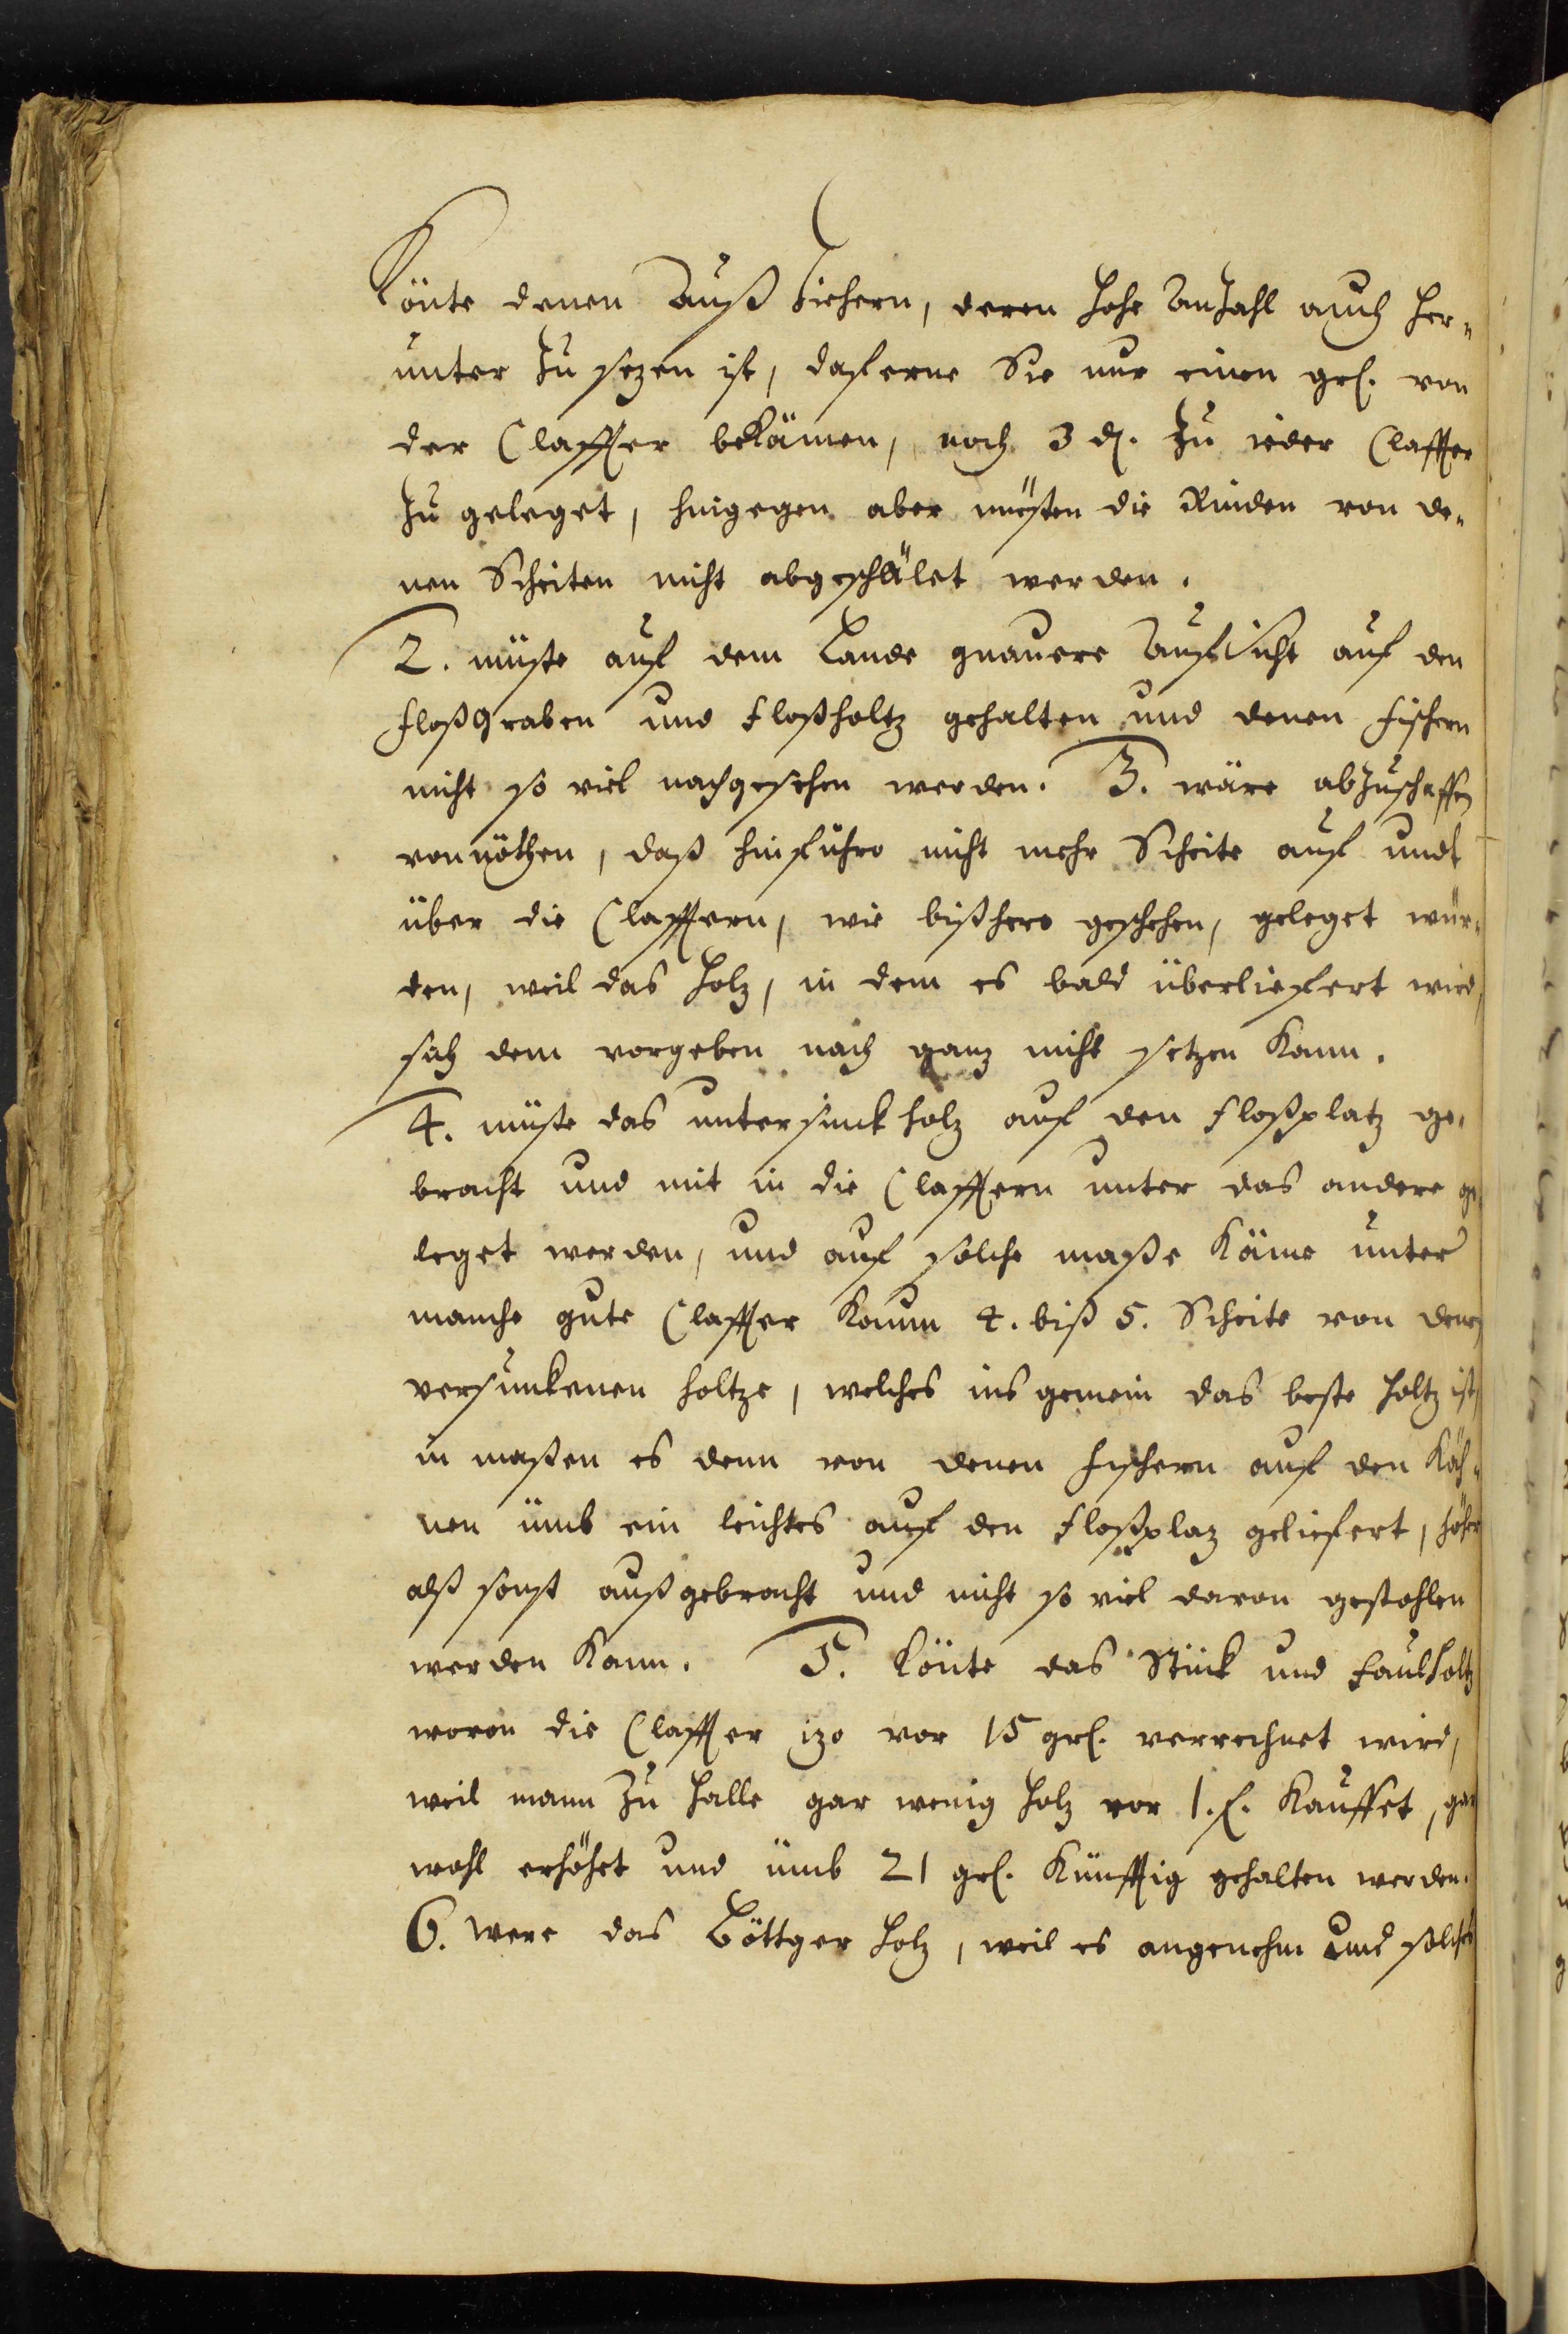 Könte denen Außziehern, deren hohe Anzahl auch her-
unter zu sezen ist, daferne Sie nur einen grl. von
der Claffter bekämen, noch 3 d. zu ieder Claffter
zu geleget, hingegen aber müsten die Rinden von de-
nen Scheiten nicht abgeschälet werden.
2. müste auf dem Lande gnauere Aufsicht auf den
Floßgraben und Floßholtz gehalten und denen Fischern
nicht so viel nachgesehen werden. 3. wäre abzuschaffen
vonnöthen, daß hinführo nicht mehr Scheite auf undt
über die Clafftern, wie bißhero geschehen, geleget wür-
den, weil das Holz, in dem es bald überliefert wird,
sich dem vorgeben nach ganz nicht setzen kann.
4. müste das untersinck holz auf den Floßplatz ge-
bracht und mit in die Clafftern unter das andere ge-
leget werden, und auf solche maße käme unter
manche gute Claffter kaum 4. biß 5. Scheite von denen
versunkenen holtze, welches ins gemein das beste holtz ist,
in maßen es denn von denen Fischern auf den Käh-
nen ümb ein leichtes auf den Floßplaz geliefert, höher
alß sonst außgebracht und nicht so viel davon gestohlen
werden kann. 5. Könte das Stück und Faulholtz
wovon die Claffter izo vor 15 grl. verrechnet wird,
weil mann zu Halle gar wenig Holz vor 1. f. kauffet, gar
wohl erhöhet und ümb 21 grl. künfftig gehalten werden.
6. were das Böttger Holz, weil es angenehm und solches